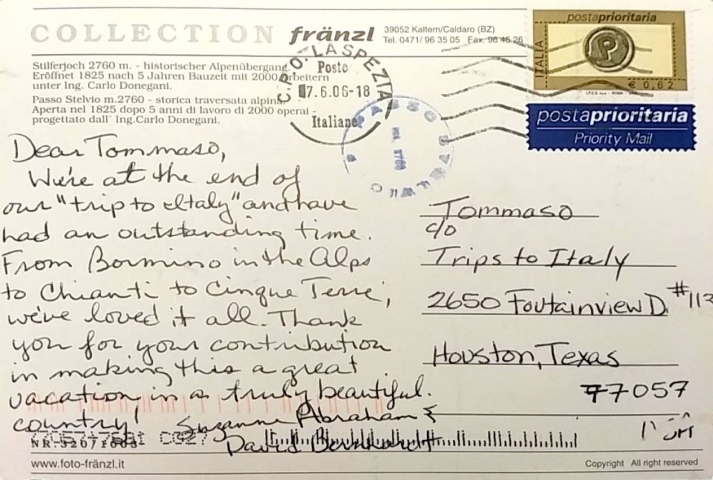 COLLECTION fränzl
39052 Kaltern/Caldaro (BZ)
Tel. 0471/ 96 35 05 Fax. 96 45 26
Stilferjoch 2760 m. - historischer Alpenübergang.
Eröffnet 1825 nach 5 Jahren Bauzeit mit 2000 Arbeitern
unter Ing. Carlo Donegani.
Passo Stelvio m.2760 - storica traversata alpina
Aperta nel 1825 dopo 5 anni di lavoro di 2000 operai -
progettato dall' Ing.Carlo Donegani.
C.P.O. LA SPEZIA
Poste
17.6.06-18
Italiane
PASSO STELVIO
2760
postaprioritaria
ITALIA
P
€ 0,62
postaprioritaria
Priority Mail
Dear Tommaso,
We're at the end of
our "trip to Italy" and have
had an outstanding time.
From Bormino in the Alps
to Chianti to Cinque Terre,
we've loved it all. Thank
you for your contribution
in making this a great
vacation in a truly beautiful.
country! Suzanne Abraham &
David
Tommaso
c/o
Trips to Italy
2650 Foutainview D. #112
Houston, Texas
77057
www.foto-fränzl.it
Copyright All right reserved